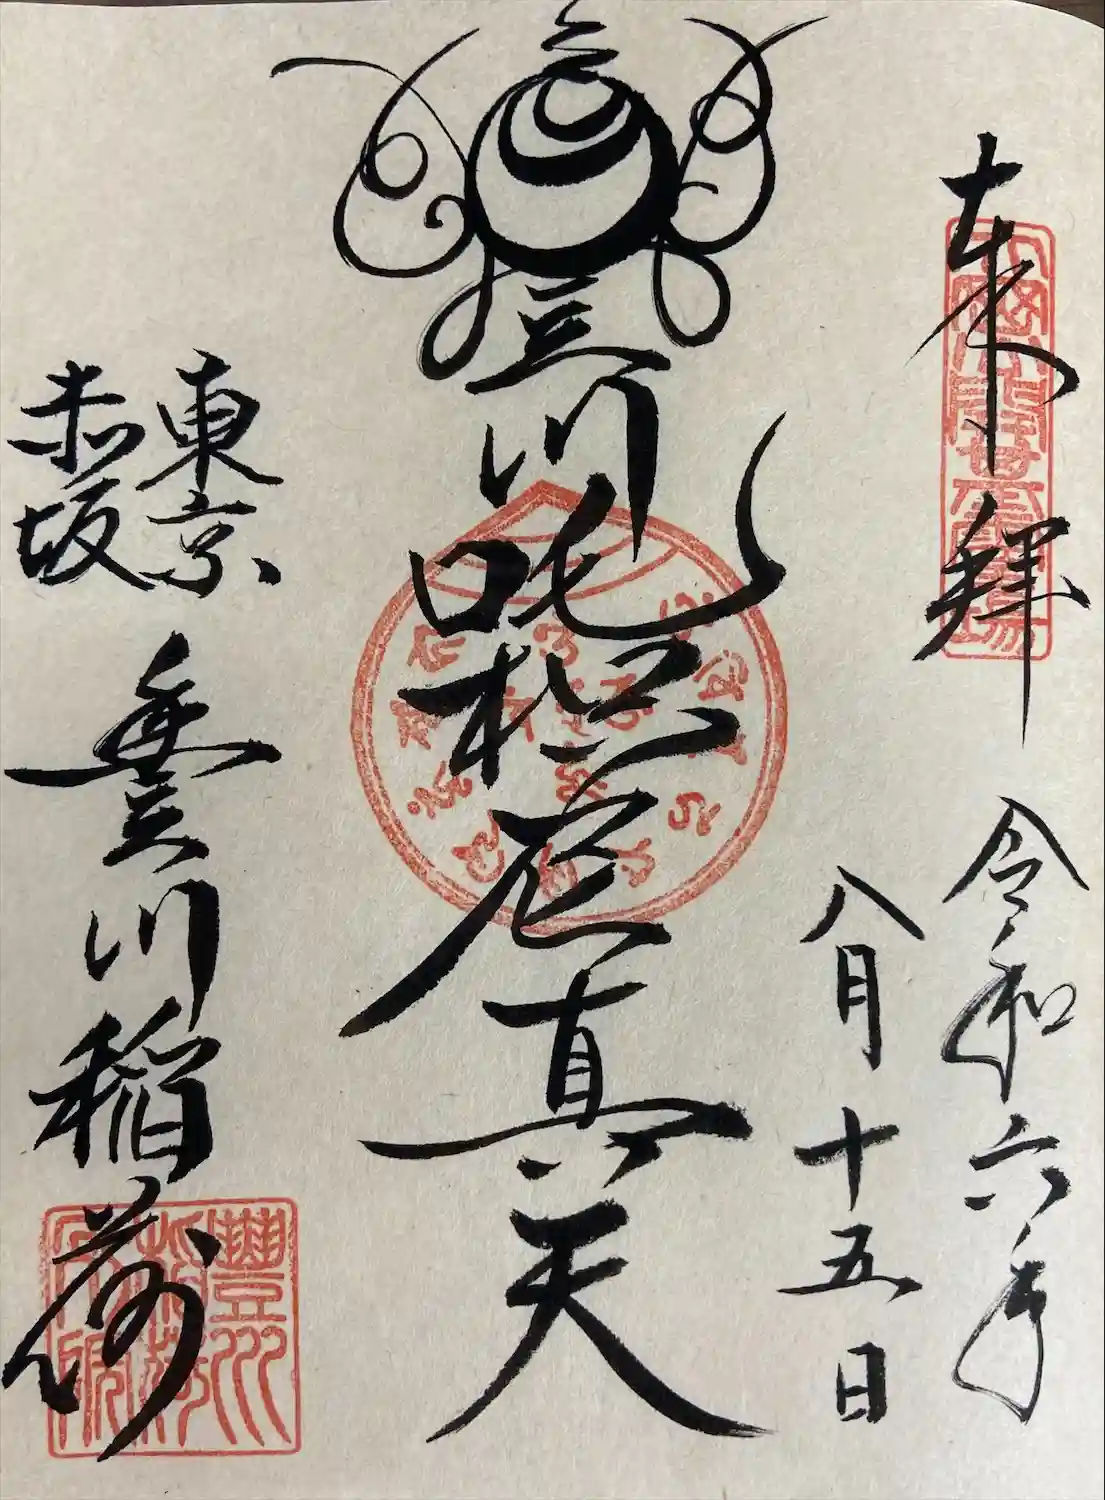 奉拝
令和六年
八月十五日
豊川吒枳尼真天
東京
赤坂
豊川稲荷
豐川